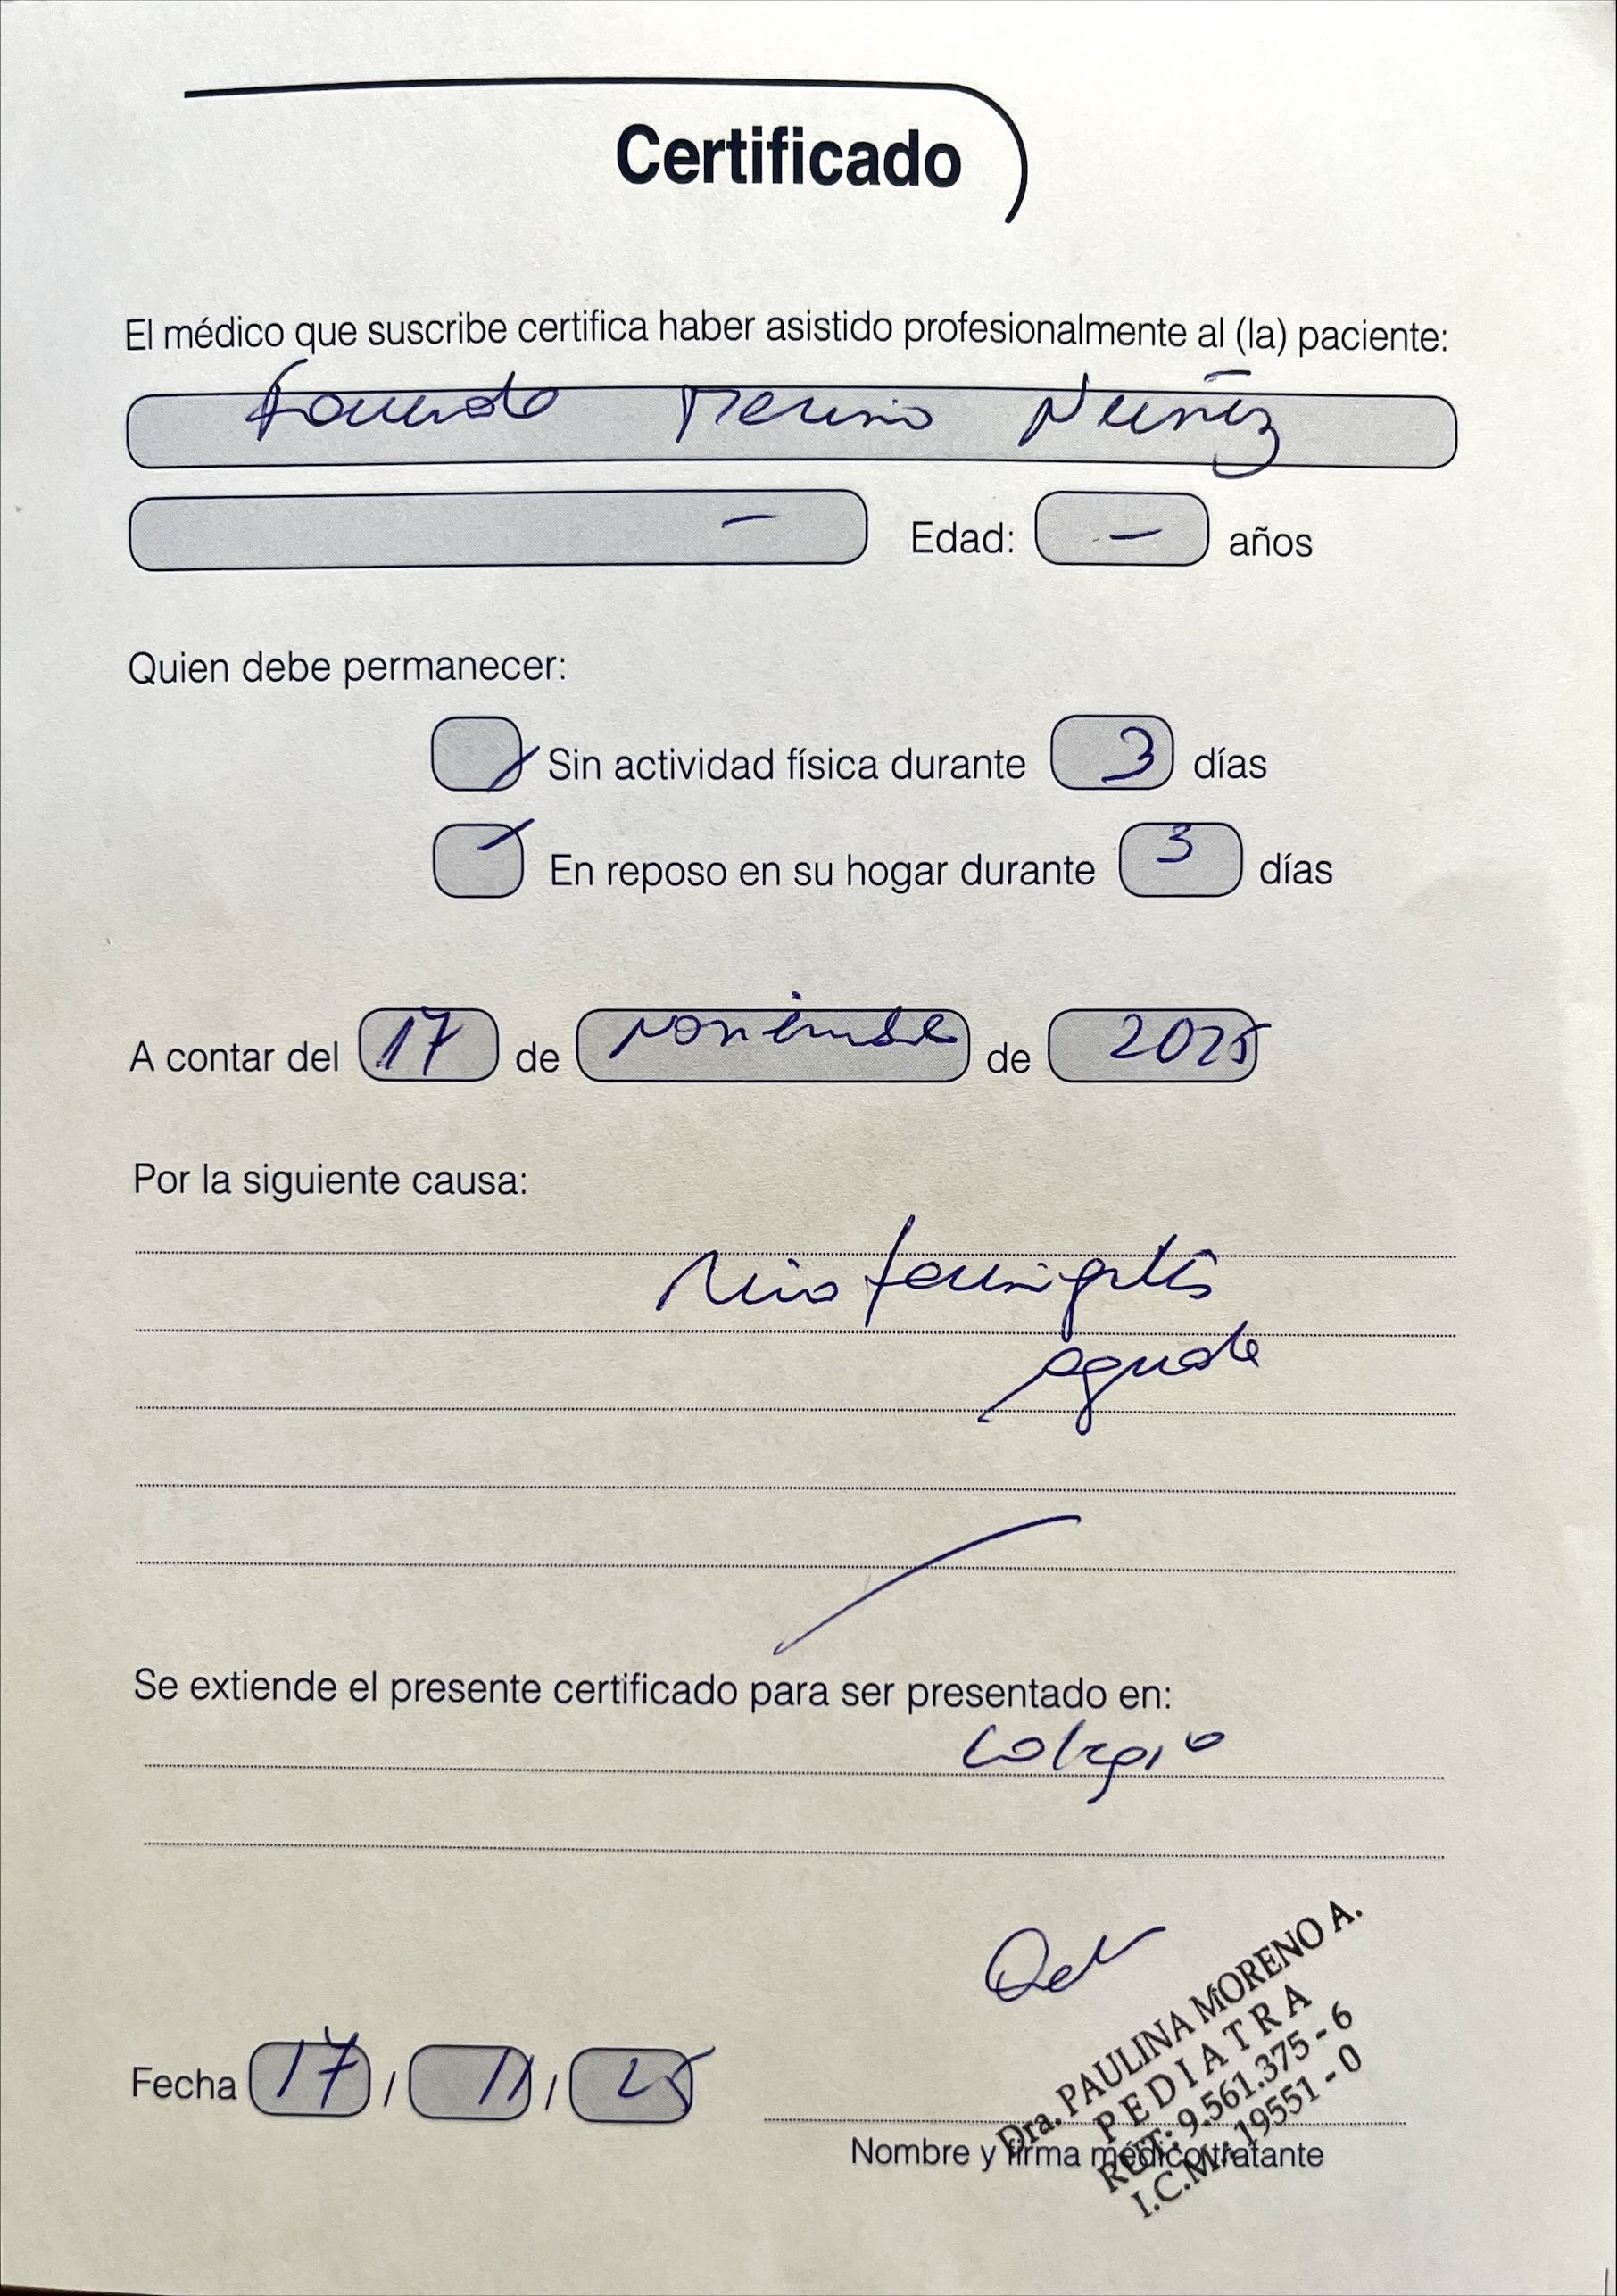 Certificado
El médico que suscribe certifica haber asistido profesionalmente al (la) paciente:
Merino Núñez
– Edad: – años
Quien debe permanecer:
Sin actividad física durante 3 días
En reposo en su hogar durante 3 días
A contar del 17 de noviembre de 2025
Por la siguiente causa:
Rinofaringitis
aguda
Se extiende el presente certificado para ser presentado en:
Colegio
Dra. PAULINA MORENO A.
PEDIATRA
RUT: 9.561.375 - 6
I.C.M.: 19551 - 0
Fecha 17 / 11 / 25
Nombre y firma médico tratante